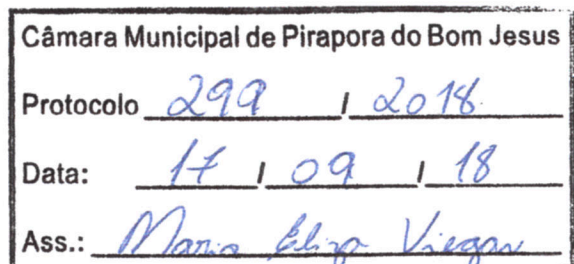 Câmara Municipal de Pirapora do Bom Jesus
Protocolo 299 / 2018
Data: 17 / 09 / 18
Ass.: Maria Eliza Viegas